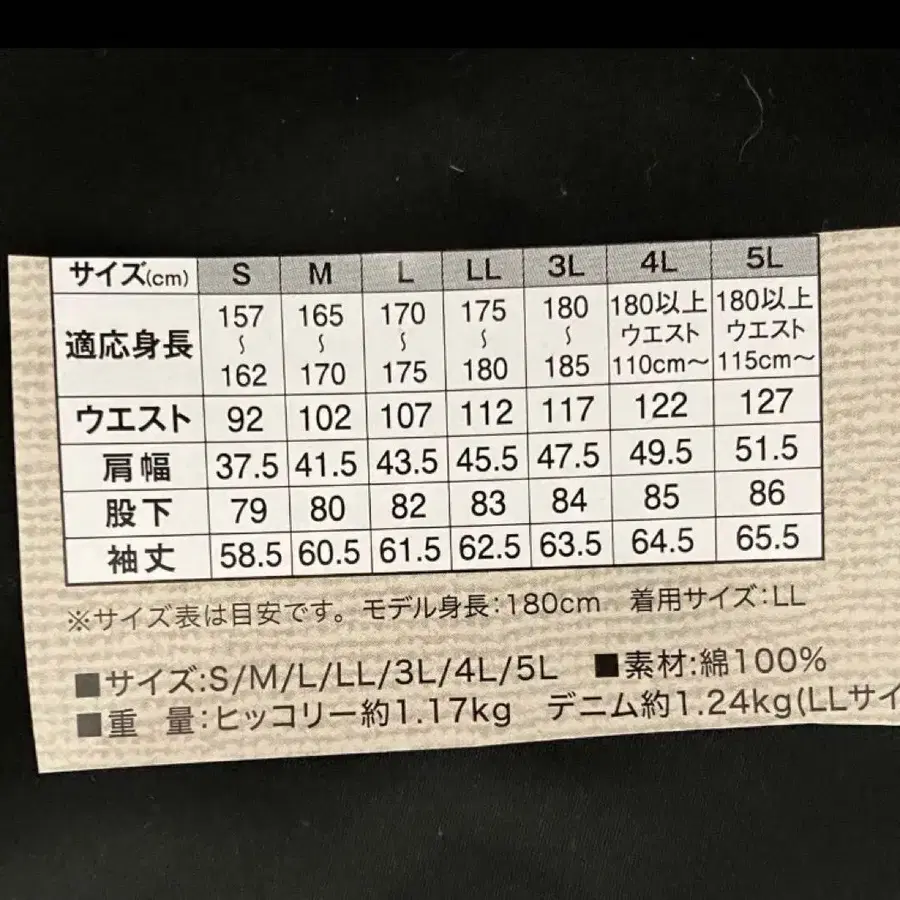 サイズ(cm) S M L LL 3L 4L 5L
適応身長 157〜162 165〜170 170〜175 175〜180 180〜185 180以上ウエスト110cm〜 180以上ウエスト115cm〜
ウエスト 92 102 107 112 117 122 127
肩幅 37.5 41.5 43.5 45.5 47.5 49.5 51.5
股下 79 80 82 83 84 85 86
袖丈 58.5 60.5 61.5 62.5 63.5 64.5 65.5
※サイズ表は目安です。モデル身長:180cm 着用サイズ:LL
■サイズ:S/M/L/LL/3L/4L/5L ■素材:綿100%
■重 量:ヒッコリー約1.17kg デニム約1.24kg(LLサイ